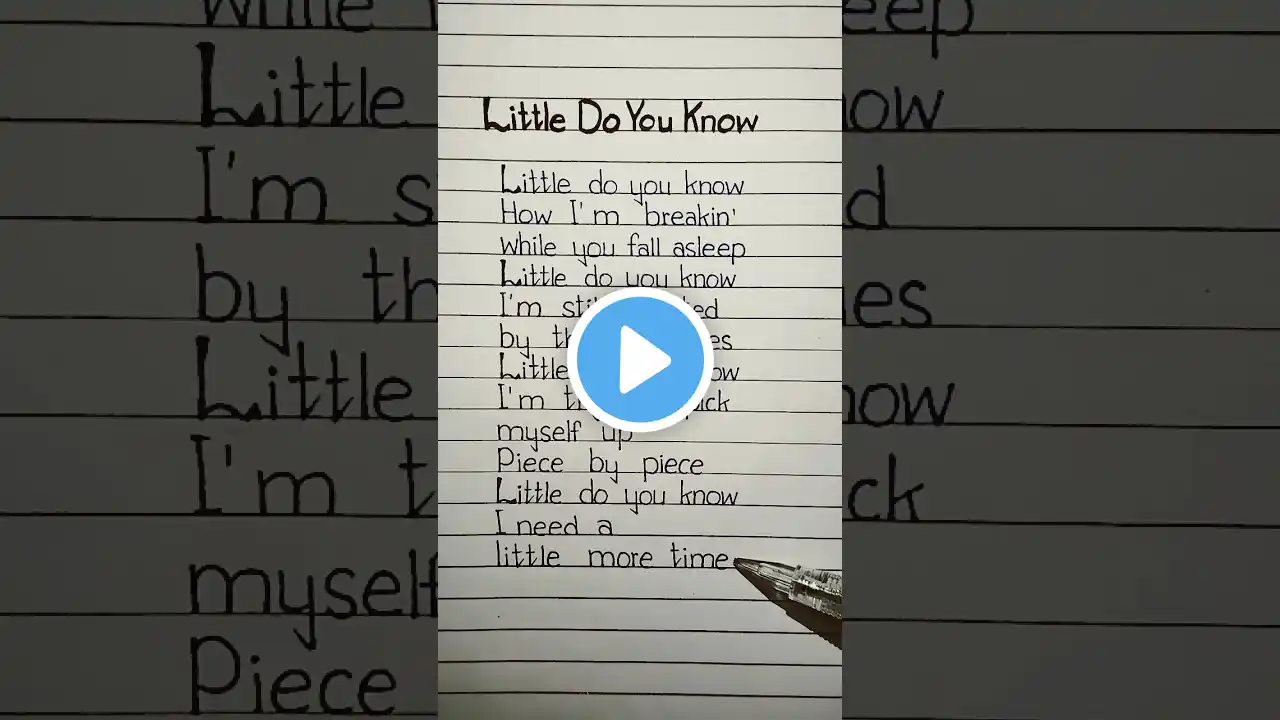 Little Do You Know
Little do you know
How I'm breakin'
while you fall asleep
Little do you know
I'm
by
Little
I'm
myself up
Piece by piece
Little do you know
I need a
little more time